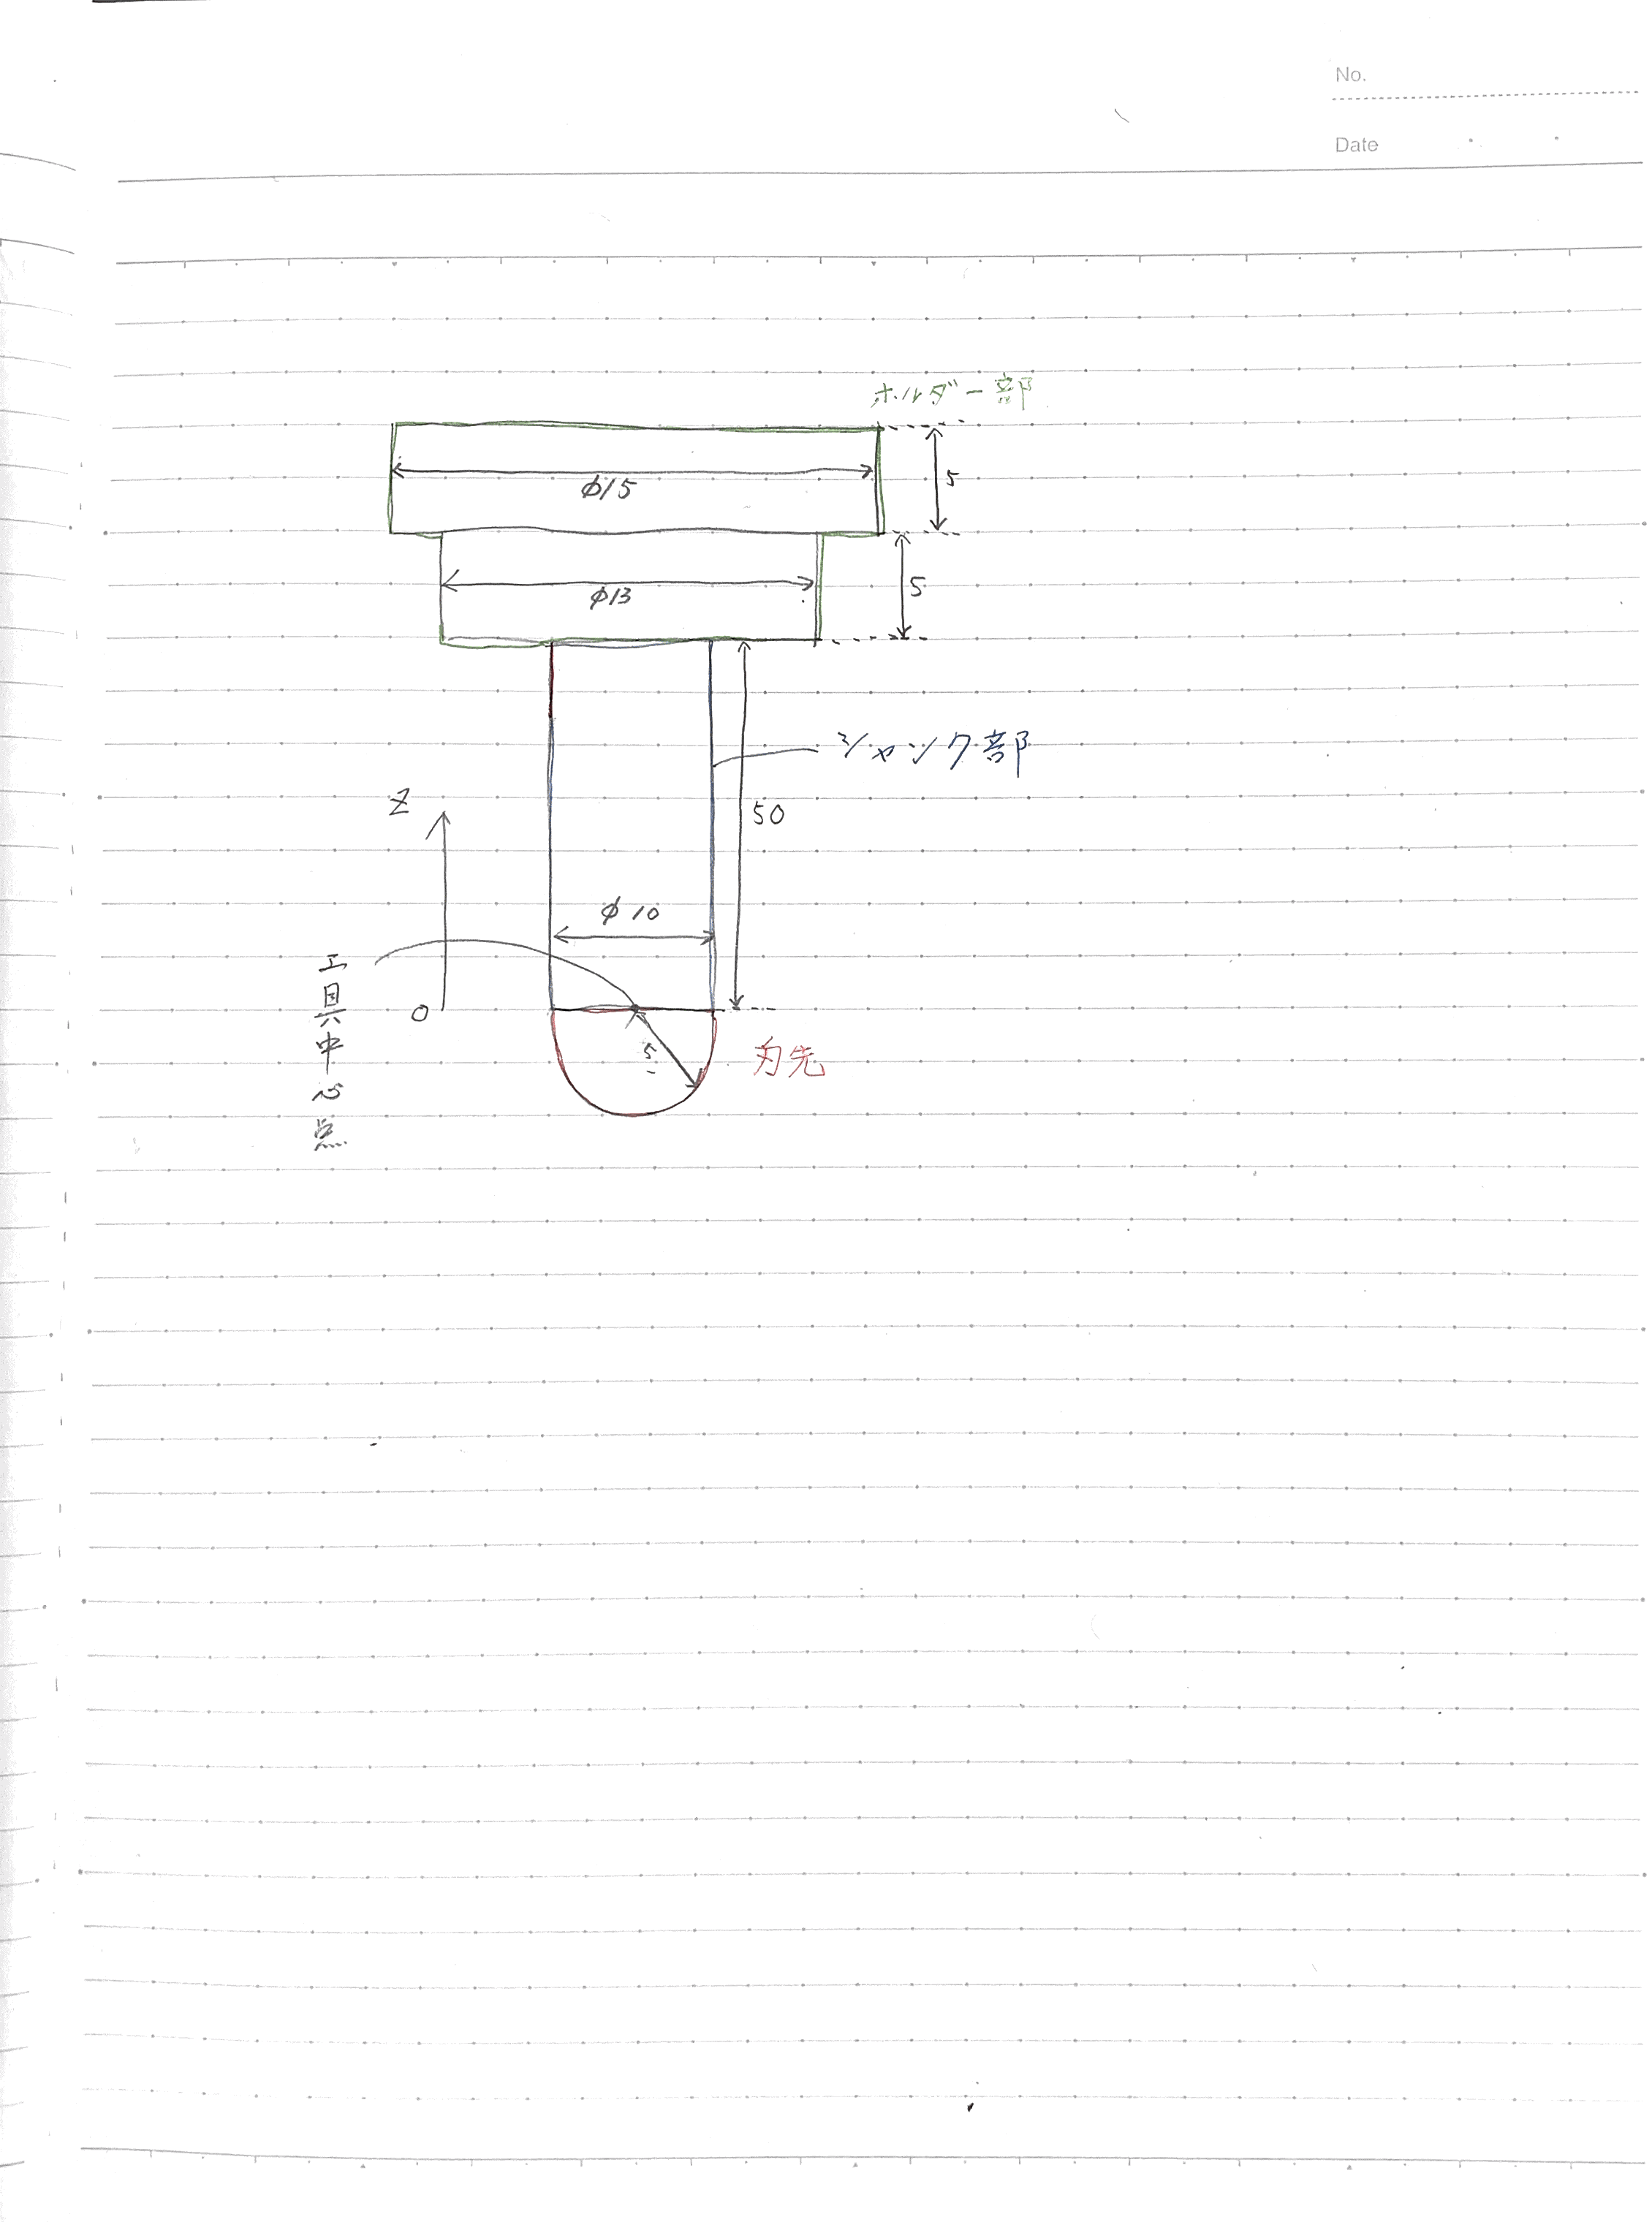 No.
Date
ホルダー部
φ15
5
φ13
5
シャンク部
Z
50
φ10
工具中心点
0
5
刃先